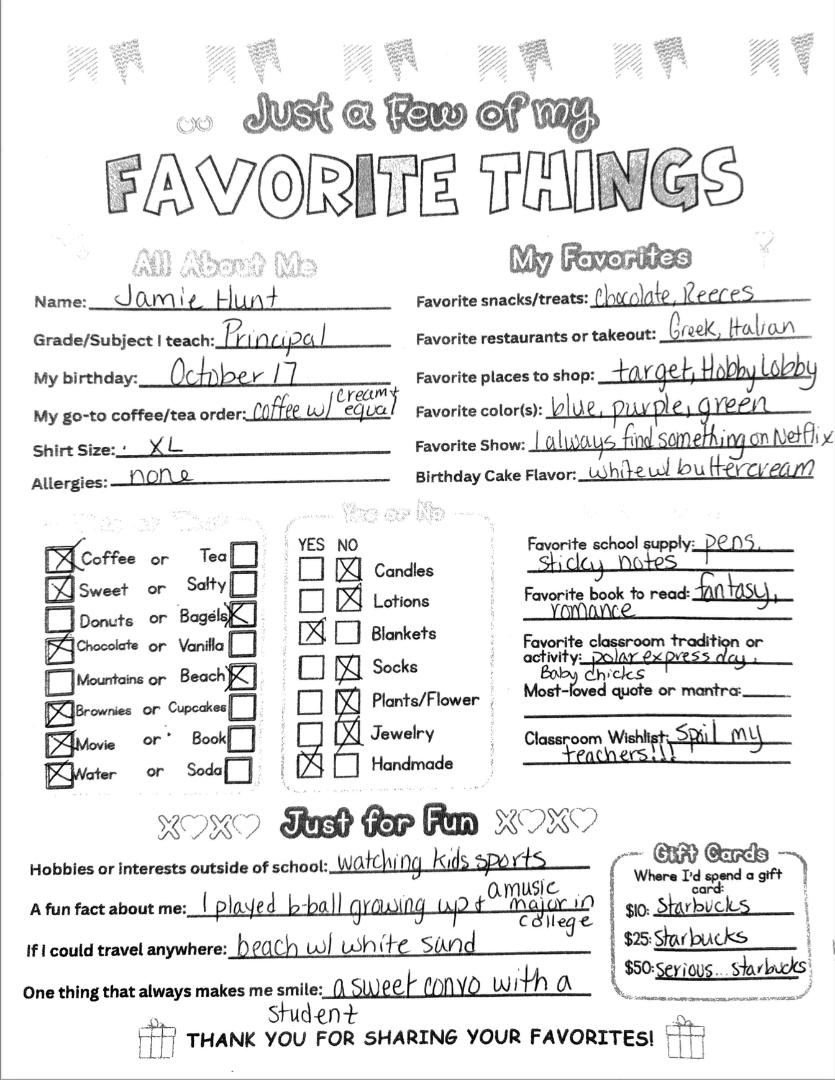 Just a Few of my
FAVORITE THINGS
All About Me
Name: Jamie Hunt
Grade/Subject I teach: Principal
My birthday: October 17
My go-to coffee/tea order: coffee w/ cream + equal
Shirt Size: XL
Allergies: none
My Favorites
Favorite snacks/treats: Chocolate, Reeces
Favorite restaurants or takeout: Greek, Italian
Favorite places to shop: target, Hobby Lobby
Favorite color(s): blue, purple, green
Favorite Show: I always find something on Netflix
Birthday Cake Flavor: white w/ buttercream
This or That
Coffee or Tea
Sweet or Salty
Donuts or Bagels
Chocolate or Vanilla
Mountains or Beach
Brownies or Cupcakes
Movie or Book
Water or Soda
Yes or No
YES NO
Candles
Lotions
Blankets
Socks
Plants/Flower
Jewelry
Handmade
Favorite school supply: pens,
sticky notes
Favorite book to read: fantasy,
romance
Favorite classroom tradition or
activity: polar express day,
Baby chicks
Most-loved quote or mantra:
Classroom Wishlist: Spoil my
teachers!!!
XOXO Just for Fun XOXO
Hobbies or interests outside of school: watching kids sports
A fun fact about me: I played b-ball growing up + a music
major in
college
If I could travel anywhere: beach w/ white sand
One thing that always makes me smile: a sweet convo with a
student
Gift Cards
Where I'd spend a gift
card:
$10: Starbucks
$25: Starbucks
$50: serious... starbucks
THANK YOU FOR SHARING YOUR FAVORITES!